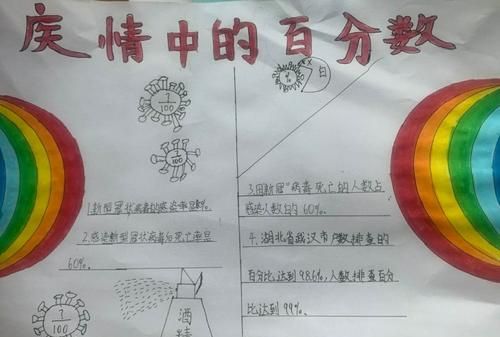 疫情中的百分数
?
100
?
100
%
X
白
1.新型冠状病毒的感染率是
2.感染新型冠状病毒的死亡率是
60%。
?
100
酒
精
3.因新冠"病毒死亡的人数占
感染人数的60%。
4.湖北省武汉市户数排查的
百分比达到98.6%,人数排查百分
比达到99%。